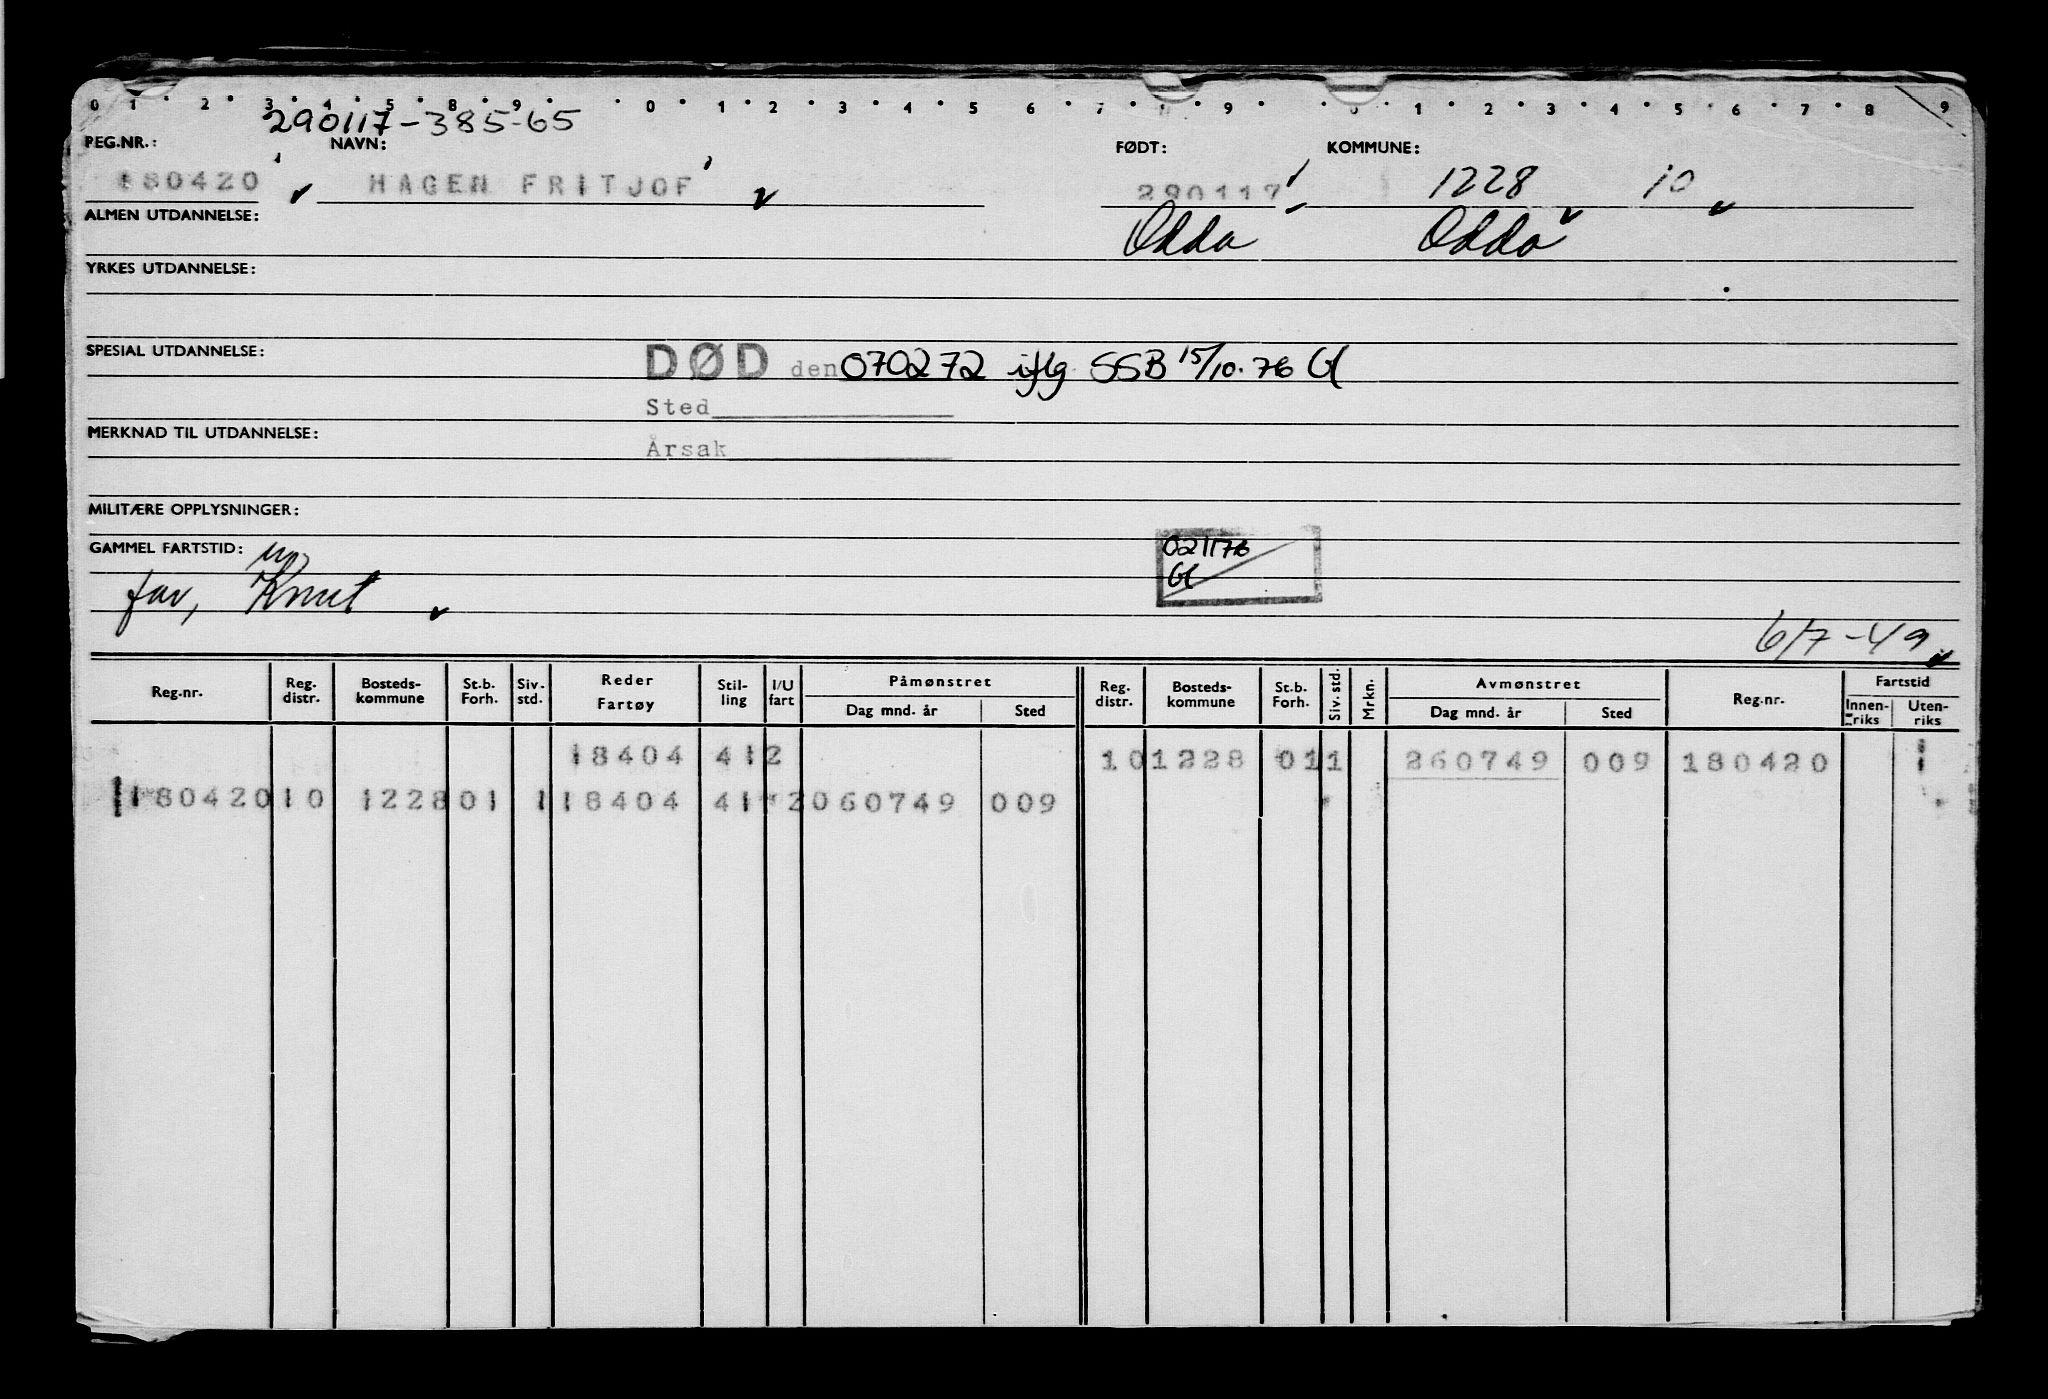 0 1 2 3 4 5 8 9 0 1 2 3 4 5 6 7 9 1 2 3 4 5 6 7 8 9
290117-385-65
REG.NR.: NAVN: FØDT: KOMMUNE:
180420 HAGEN FRITJOF 290117 1228 10
ALMEN UTDANNELSE: Odda Odda
YRKES UTDANNELSE:
SPESIAL UTDANNELSE: DØD den 070272 iflg SSB 15/10.76
Sted
MERKNAD TIL UTDANNELSE:
Årsak
MILITÆRE OPPLYSNINGER:
GAMMEL FARTSTID: 021176
far, Knut
6/7-49
Reg.nr. Reg. distr. Bosteds-kommune St.b. Forh. Siv. std. Reder Fartøy Stil-ling I/U fart Påmønstret Dag mnd. år Sted Reg. distr. Bosteds-kommune St.b. Forh. Siv. std. Mrkn. Avmønstret Dag mnd. år Sted Reg.nr. Fartstid Innen-riks Uten-riks
18404 412 10 1228 01 1 260749 009 180420 1
180420 10 1228 01 1 18404 41 2 060749 009